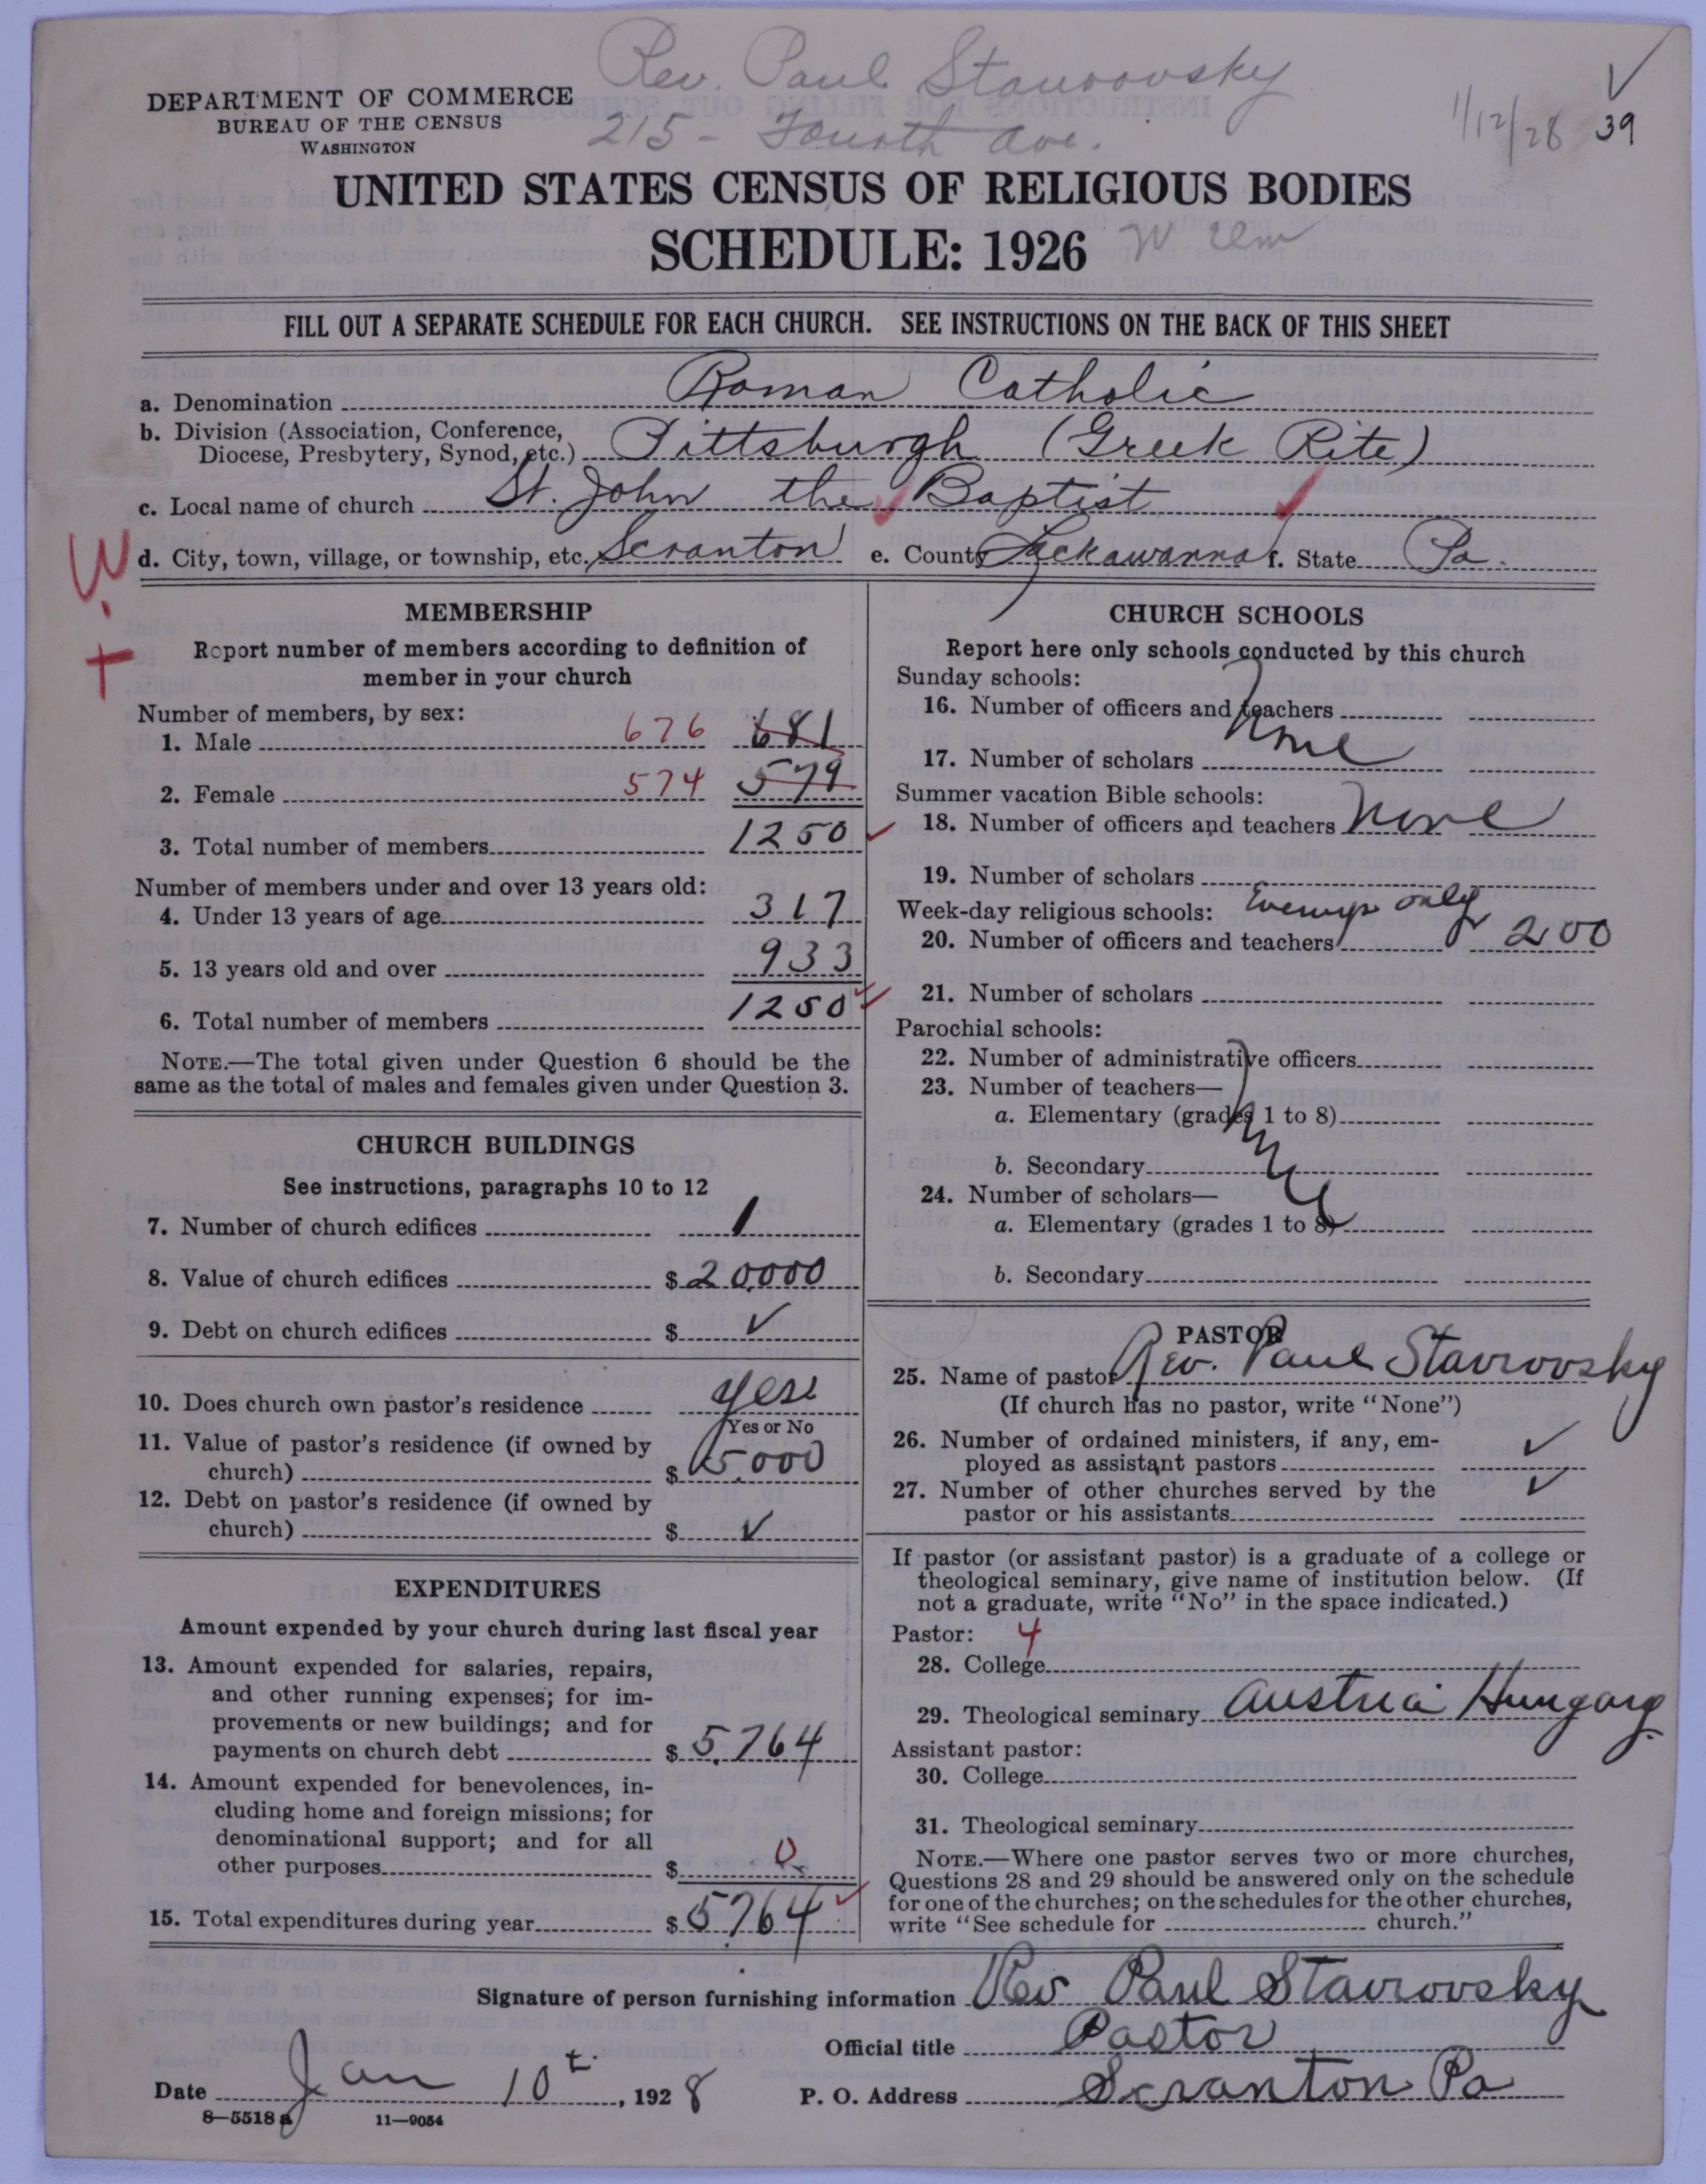 Rev. Paul Stavrovsky
215 - Fourth Ave.
1/12/28 39
DEPARTMENT OF COMMERCE
BUREAU OF THE CENSUS
WASHINGTON
UNITED STATES CENSUS OF RELIGIOUS BODIES
SCHEDULE: 1926
FILL OUT A SEPARATE SCHEDULE FOR EACH CHURCH. SEE INSTRUCTIONS ON THE BACK OF THIS SHEET
a. Denomination Roman Catholic
b. Division (Association, Conference, Diocese, Presbytery, Synod, etc.) Pittsburgh (Greek Rite)
c. Local name of church St. John the Baptist
d. City, town, village, or township, etc. Scranton e. County Lackawanna f. State Pa.
W
MEMBERSHIP
Report number of members according to definition of
member in your church
Number of members, by sex:
1. Male 676 681
2. Female 574 579
3. Total number of members 1250
Number of members under and over 13 years old:
4. Under 13 years of age 317
5. 13 years old and over 933
6. Total number of members 1250
NOTE.—The total given under Question 6 should be the
same as the total of males and females given under Question 3.
CHURCH BUILDINGS
See instructions, paragraphs 10 to 12
7. Number of church edifices 1
8. Value of church edifices $ 20000
9. Debt on church edifices $ ✓
10. Does church own pastor's residence yes
Yes or No
11. Value of pastor's residence (if owned by
church) $ 5000
12. Debt on pastor's residence (if owned by
church) $ ✓
EXPENDITURES
Amount expended by your church during last fiscal year
13. Amount expended for salaries, repairs,
and other running expenses; for im-
provements or new buildings; and for
payments on church debt $ 5,764
14. Amount expended for benevolences, in-
cluding home and foreign missions; for
denominational support; and for all
other purposes $ 0
15. Total expenditures during year $ 5764
CHURCH SCHOOLS
Report here only schools conducted by this church
Sunday schools:
16. Number of officers and teachers
None
17. Number of scholars
Summer vacation Bible schools:
18. Number of officers and teachers None
19. Number of scholars
Week-day religious schools: Evenings only
20. Number of officers and teachers 200
21. Number of scholars
Parochial schools:
22. Number of administrative officers
23. Number of teachers—
a. Elementary (grades 1 to 8)
b. Secondary
24. Number of scholars—
a. Elementary (grades 1 to 8)
b. Secondary
PASTOR
25. Name of pastor Rev. Paul Stavrovsky
(If church has no pastor, write "None")
26. Number of ordained ministers, if any, em-
ployed as assistant pastors ✓
27. Number of other churches served by the
pastor or his assistants ✓
If pastor (or assistant pastor) is a graduate of a college or
theological seminary, give name of institution below. (If
not a graduate, write "No" in the space indicated.)
Pastor: 4
28. College
29. Theological seminary Austria Hungary
Assistant pastor:
30. College
31. Theological seminary
NOTE.—Where one pastor serves two or more churches,
Questions 28 and 29 should be answered only on the schedule
for one of the churches; on the schedules for the other churches,
write "See schedule for church."
Signature of person furnishing information Rev Paul Stavrovsky
Official title Pastor
Date Jan 10 t., 1928 P. O. Address Scranton Pa
8—5518 a 11—9054